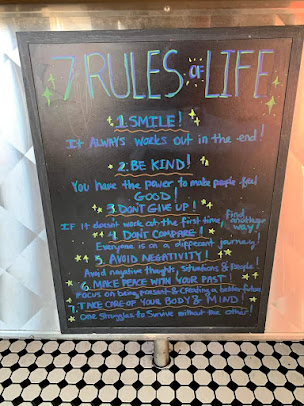 7 RULES OF LIFE
1. SMILE!
It ALWAYS works out in the end!
2. BE KIND!
You have the power to make people feel
GOOD!
3. DON'T GIVE UP!
IF It doesn't work at the first time, find another way!
4. DON'T COMPARE!
Everyone is on a different journey!
5. AVOID NEGATIVITY!
Avoid negative thoughts, situations & People!
6. MAKE PEACE WITH YOUR PAST!
FOCUS on being present & creating a better future
7. TAKE CARE OF YOUR BODY & MIND!
One struggles to survive without the other!